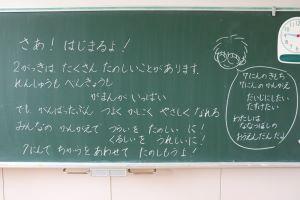 さあ！はじまるよ！
2がっきは、たくさん たのしいことが あります。
れんしゅうも べんきょうも
がまんが いっぱい
でも、がんばったぶん つよく かしこく やさしく なれる
みんなの かんがえで つらいを たのしい に！
くるしいを うれしいに！
7にんで ちからを あわせて たのしもうよ！
7にんの きもち
7にんの かんがえ
だいじにしたい
たすけたい
わたしは
ななつぼしの
おうえんだんだよ